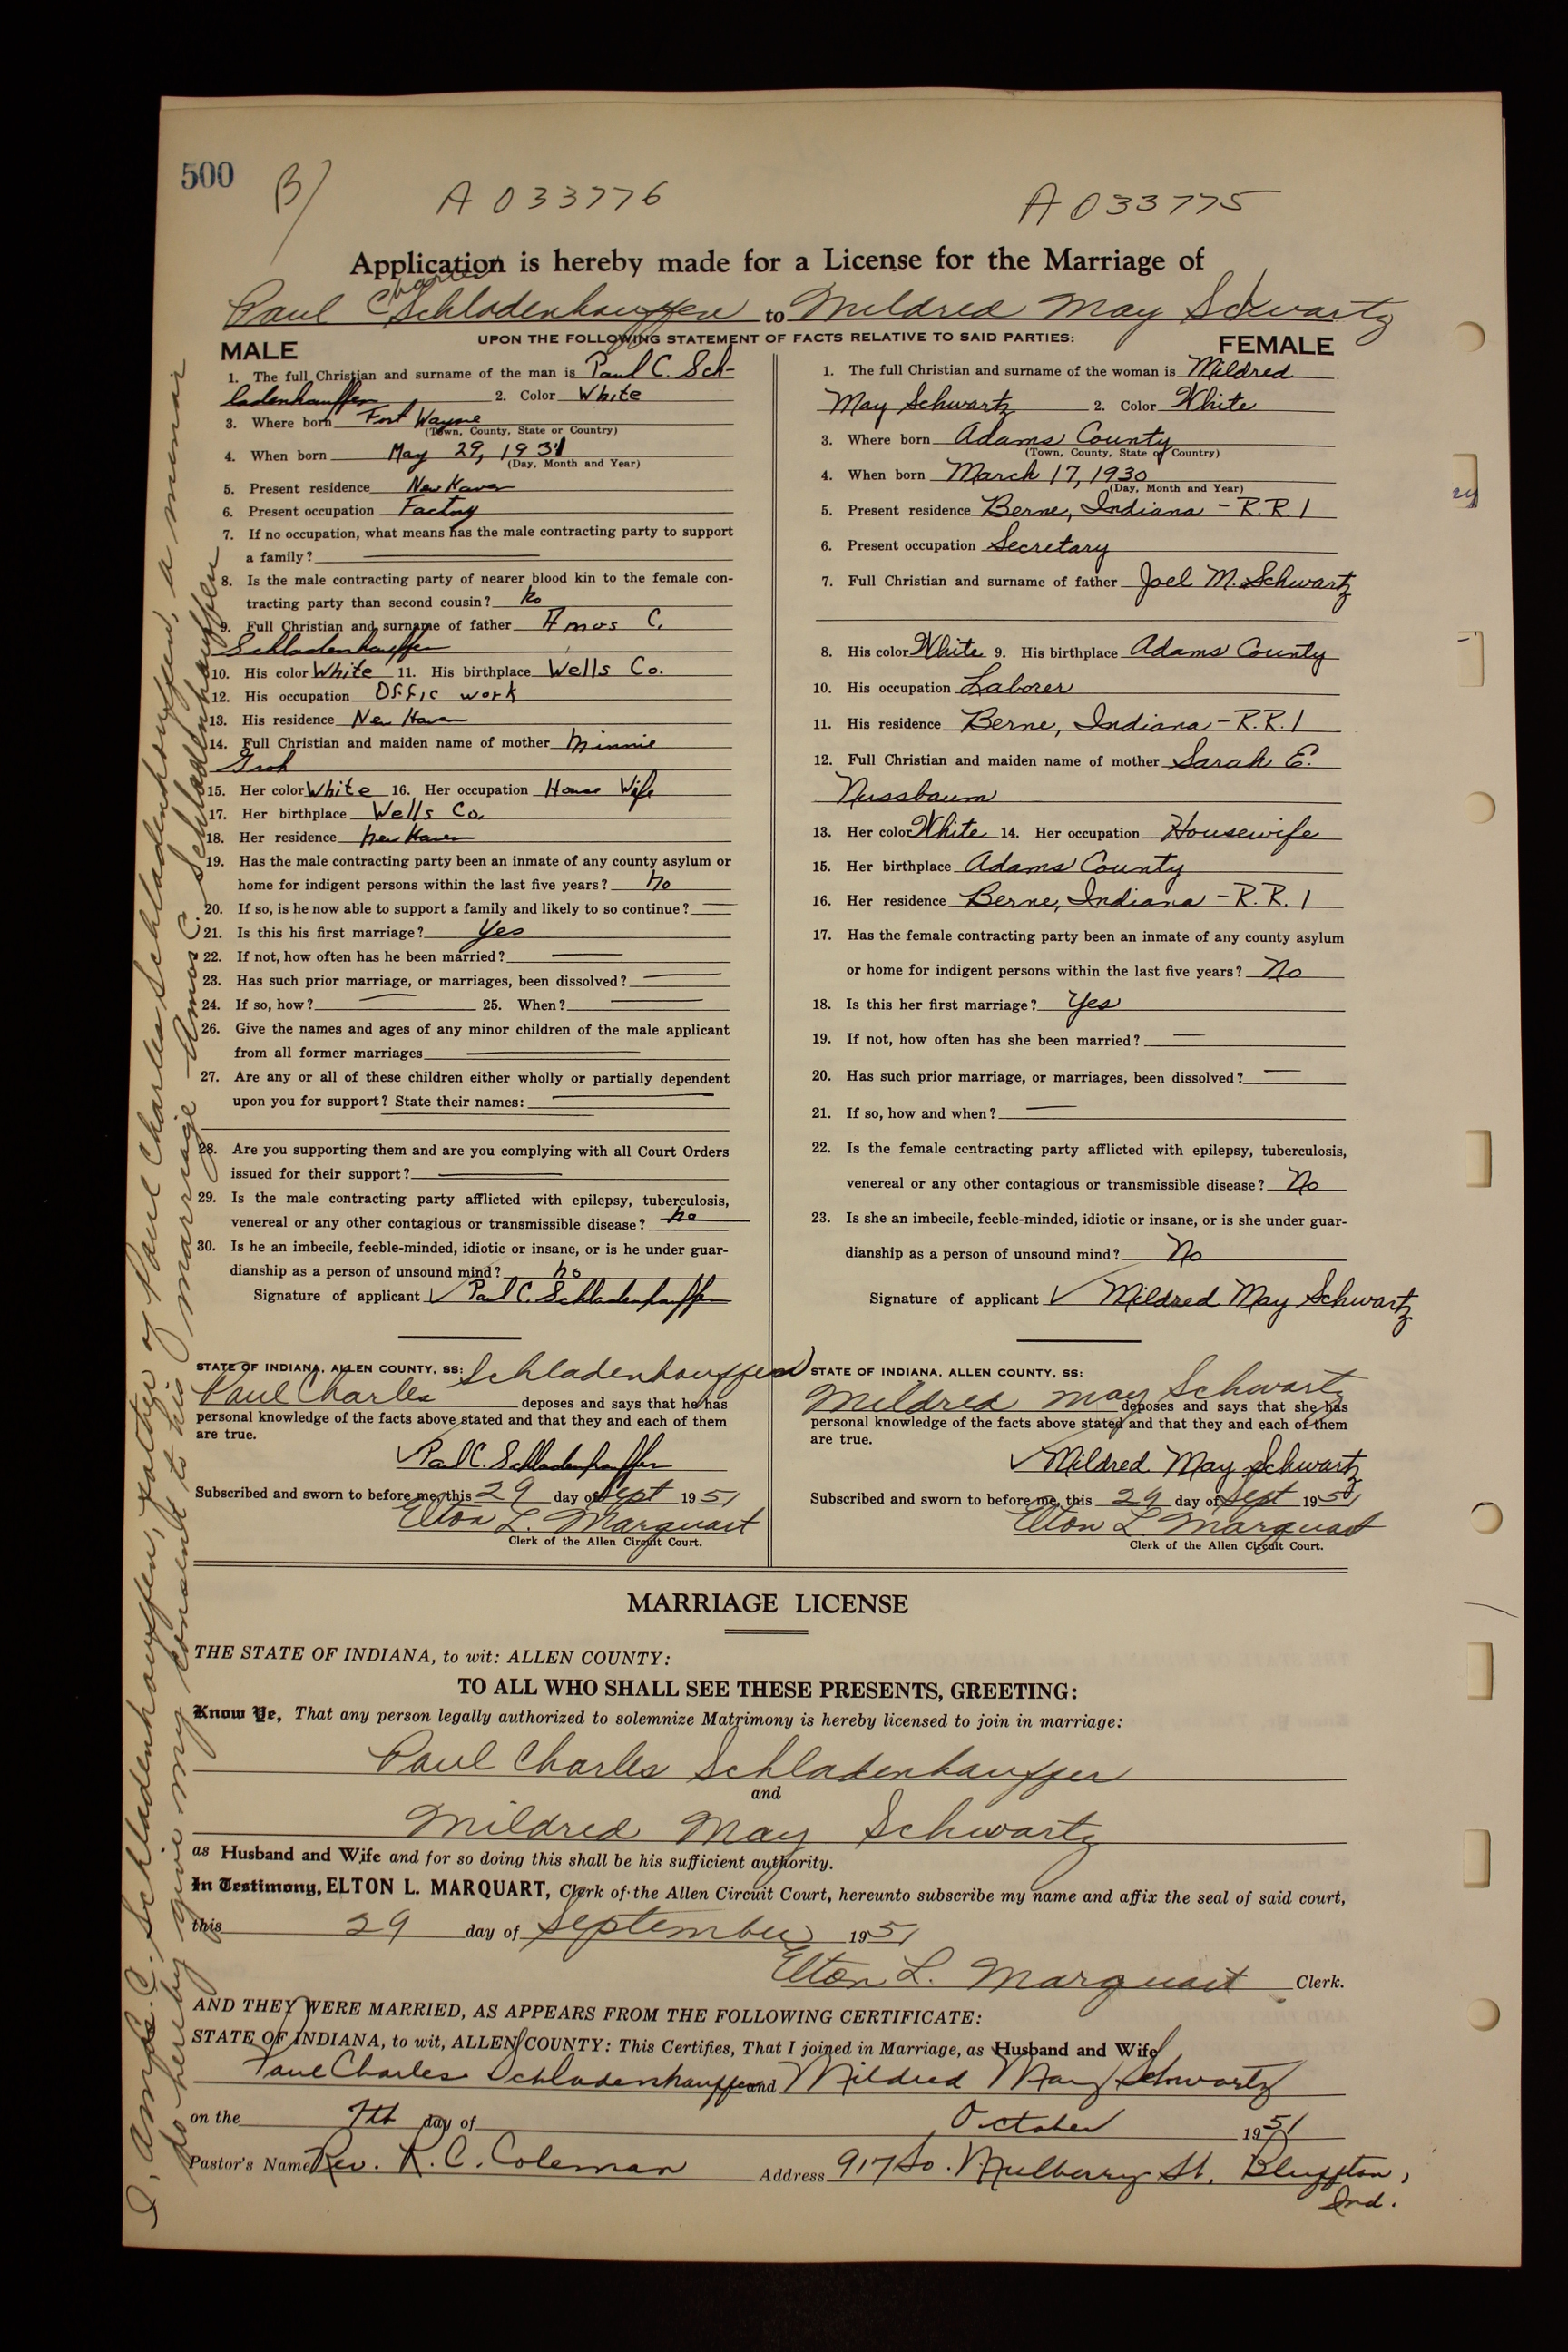 500
B/
A 033776
A 033775
Application is hereby made for a License for the Marriage of
Charles
Paul C Schladenhauffen to Mildred May Schwartz
UPON THE FOLLOWING STATEMENT OF FACTS RELATIVE TO SAID PARTIES:
MALE
1. The full Christian and surname of the man is Paul C. Sch-
ladenhauffen 2. Color White
3. Where born Fort Wayne
(Town, County, State or Country)
4. When born May 29, 1931
(Day, Month and Year)
5. Present residence New Haven
6. Present occupation Factory
7. If no occupation, what means has the male contracting party to support
a family?
8. Is the male contracting party of nearer blood kin to the female con-
tracting party than second cousin? No
9. Full Christian and surname of father Amos C.
Schladenhauffen
10. His color White 11. His birthplace Wells Co.
12. His occupation Offic work
13. His residence New Haven
14. Full Christian and maiden name of mother Minnie
Groh
15. Her color White 16. Her occupation House Wife
17. Her birthplace Wells Co.
18. Her residence New Haven
19. Has the male contracting party been an inmate of any county asylum or
home for indigent persons within the last five years? no
20. If so, is he now able to support a family and likely to so continue?
21. Is this his first marriage? Yes
22. If not, how often has he been married?
23. Has such prior marriage, or marriages, been dissolved?
24. If so, how? 25. When?
26. Give the names and ages of any minor children of the male applicant
from all former marriages
27. Are any or all of these children either wholly or partially dependent
upon you for support? State their names:
28. Are you supporting them and are you complying with all Court Orders
issued for their support?
29. Is the male contracting party afflicted with epilepsy, tuberculosis,
venereal or any other contagious or transmissible disease? no
30. Is he an imbecile, feeble-minded, idiotic or insane, or is he under guar-
dianship as a person of unsound mind? no
Signature of applicant Paul C. Schladenhauffen
STATE OF INDIANA, ALLEN COUNTY, SS: Schladenhauffen
Paul Charles deposes and says that he has
personal knowledge of the facts above stated and that they and each of them
are true.
Paul C. Schladenhauffen
Subscribed and sworn to before me, this 29 day of Sept 1951
Elton L. Marquart
Clerk of the Allen Circuit Court.
FEMALE
1. The full Christian and surname of the woman is Mildred
May Schwartz 2. Color White
3. Where born Adams County
(Town, County, State or Country)
4. When born March 17, 1930
(Day, Month and Year)
5. Present residence Berne, Indiana - R.R. 1
6. Present occupation Secretary
7. Full Christian and surname of father Joel M. Schwartz
8. His color White 9. His birthplace Adams County
10. His occupation Laborer
11. His residence Berne, Indiana - R.R. 1
12. Full Christian and maiden name of mother Sarah E.
Nussbaum
13. Her color White 14. Her occupation Housewife
15. Her birthplace Adams County
16. Her residence Berne, Indiana - R.R. 1
17. Has the female contracting party been an inmate of any county asylum
or home for indigent persons within the last five years? No
18. Is this her first marriage? Yes
19. If not, how often has she been married?
20. Has such prior marriage, or marriages, been dissolved?
21. If so, how and when?
22. Is the female contracting party afflicted with epilepsy, tuberculosis,
venereal or any other contagious or transmissible disease? No
23. Is she an imbecile, feeble-minded, idiotic or insane, or is she under guar-
dianship as a person of unsound mind? No
Signature of applicant Mildred May Schwartz
STATE OF INDIANA, ALLEN COUNTY, SS:
Mildred May Schwartz deposes and says that she has
personal knowledge of the facts above stated and that they and each of them
are true.
Mildred May Schwartz
Subscribed and sworn to before me, this 29 day of Sept 1951
Elton L. Marquart
Clerk of the Allen Circuit Court.
MARRIAGE LICENSE
THE STATE OF INDIANA, to wit: ALLEN COUNTY:
TO ALL WHO SHALL SEE THESE PRESENTS, GREETING:
Know Ye, That any person legally authorized to solemnize Matrimony is hereby licensed to join in marriage:
Paul Charles Schladenhauffen
and
Mildred May Schwartz
as Husband and Wife and for so doing this shall be his sufficient authority.
In Testimony, ELTON L. MARQUART, Clerk of the Allen Circuit Court, hereunto subscribe my name and affix the seal of said court,
this 29 day of September 1951
Elton L. Marquart Clerk.
AND THEY WERE MARRIED, AS APPEARS FROM THE FOLLOWING CERTIFICATE:
STATE OF INDIANA, to wit, ALLEN COUNTY: This Certifies, That I joined in Marriage, as Husband and Wife
Paul Charles Schladenhauffen and Mildred May Schwartz
on the 7th day of October 1951
Pastor's Name Rev. R. C. Coleman Address 917 So. Mulberry St. Bluffton,
Ind.
I, Amos C. Schladenhauffen, father of Paul Charles Schladenhauffen, a minor
do hereby give my consent to his marriage Amos C. Schladenhauffen